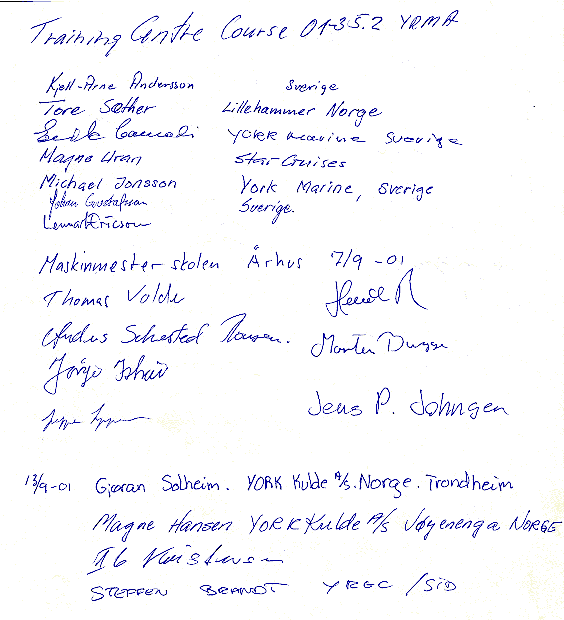 Training Centre Course 01-3-5.2 YRMA
Kjell-Arne Andersson Sverige
Tore Sæther Lillehammer Norge
YORK Marine Sverige
Magne Uran Star Cruises
Michael Jonsson York Marine, Sverige
Johan Gustafsson Sverige.
Lennart Ericson
Maskinmesterskolen Århus 7/9-01
Thomas Volde
Morten Dugge
Jens P. Johnsen
13/9-01 Gjøran Solheim. YORK Kulde A/S. Norge. Trondheim
Magne Hansen YORK Kulde A/S Vøyenenga NORGE
Ib
STEFFEN BRANDT YRGC /SID